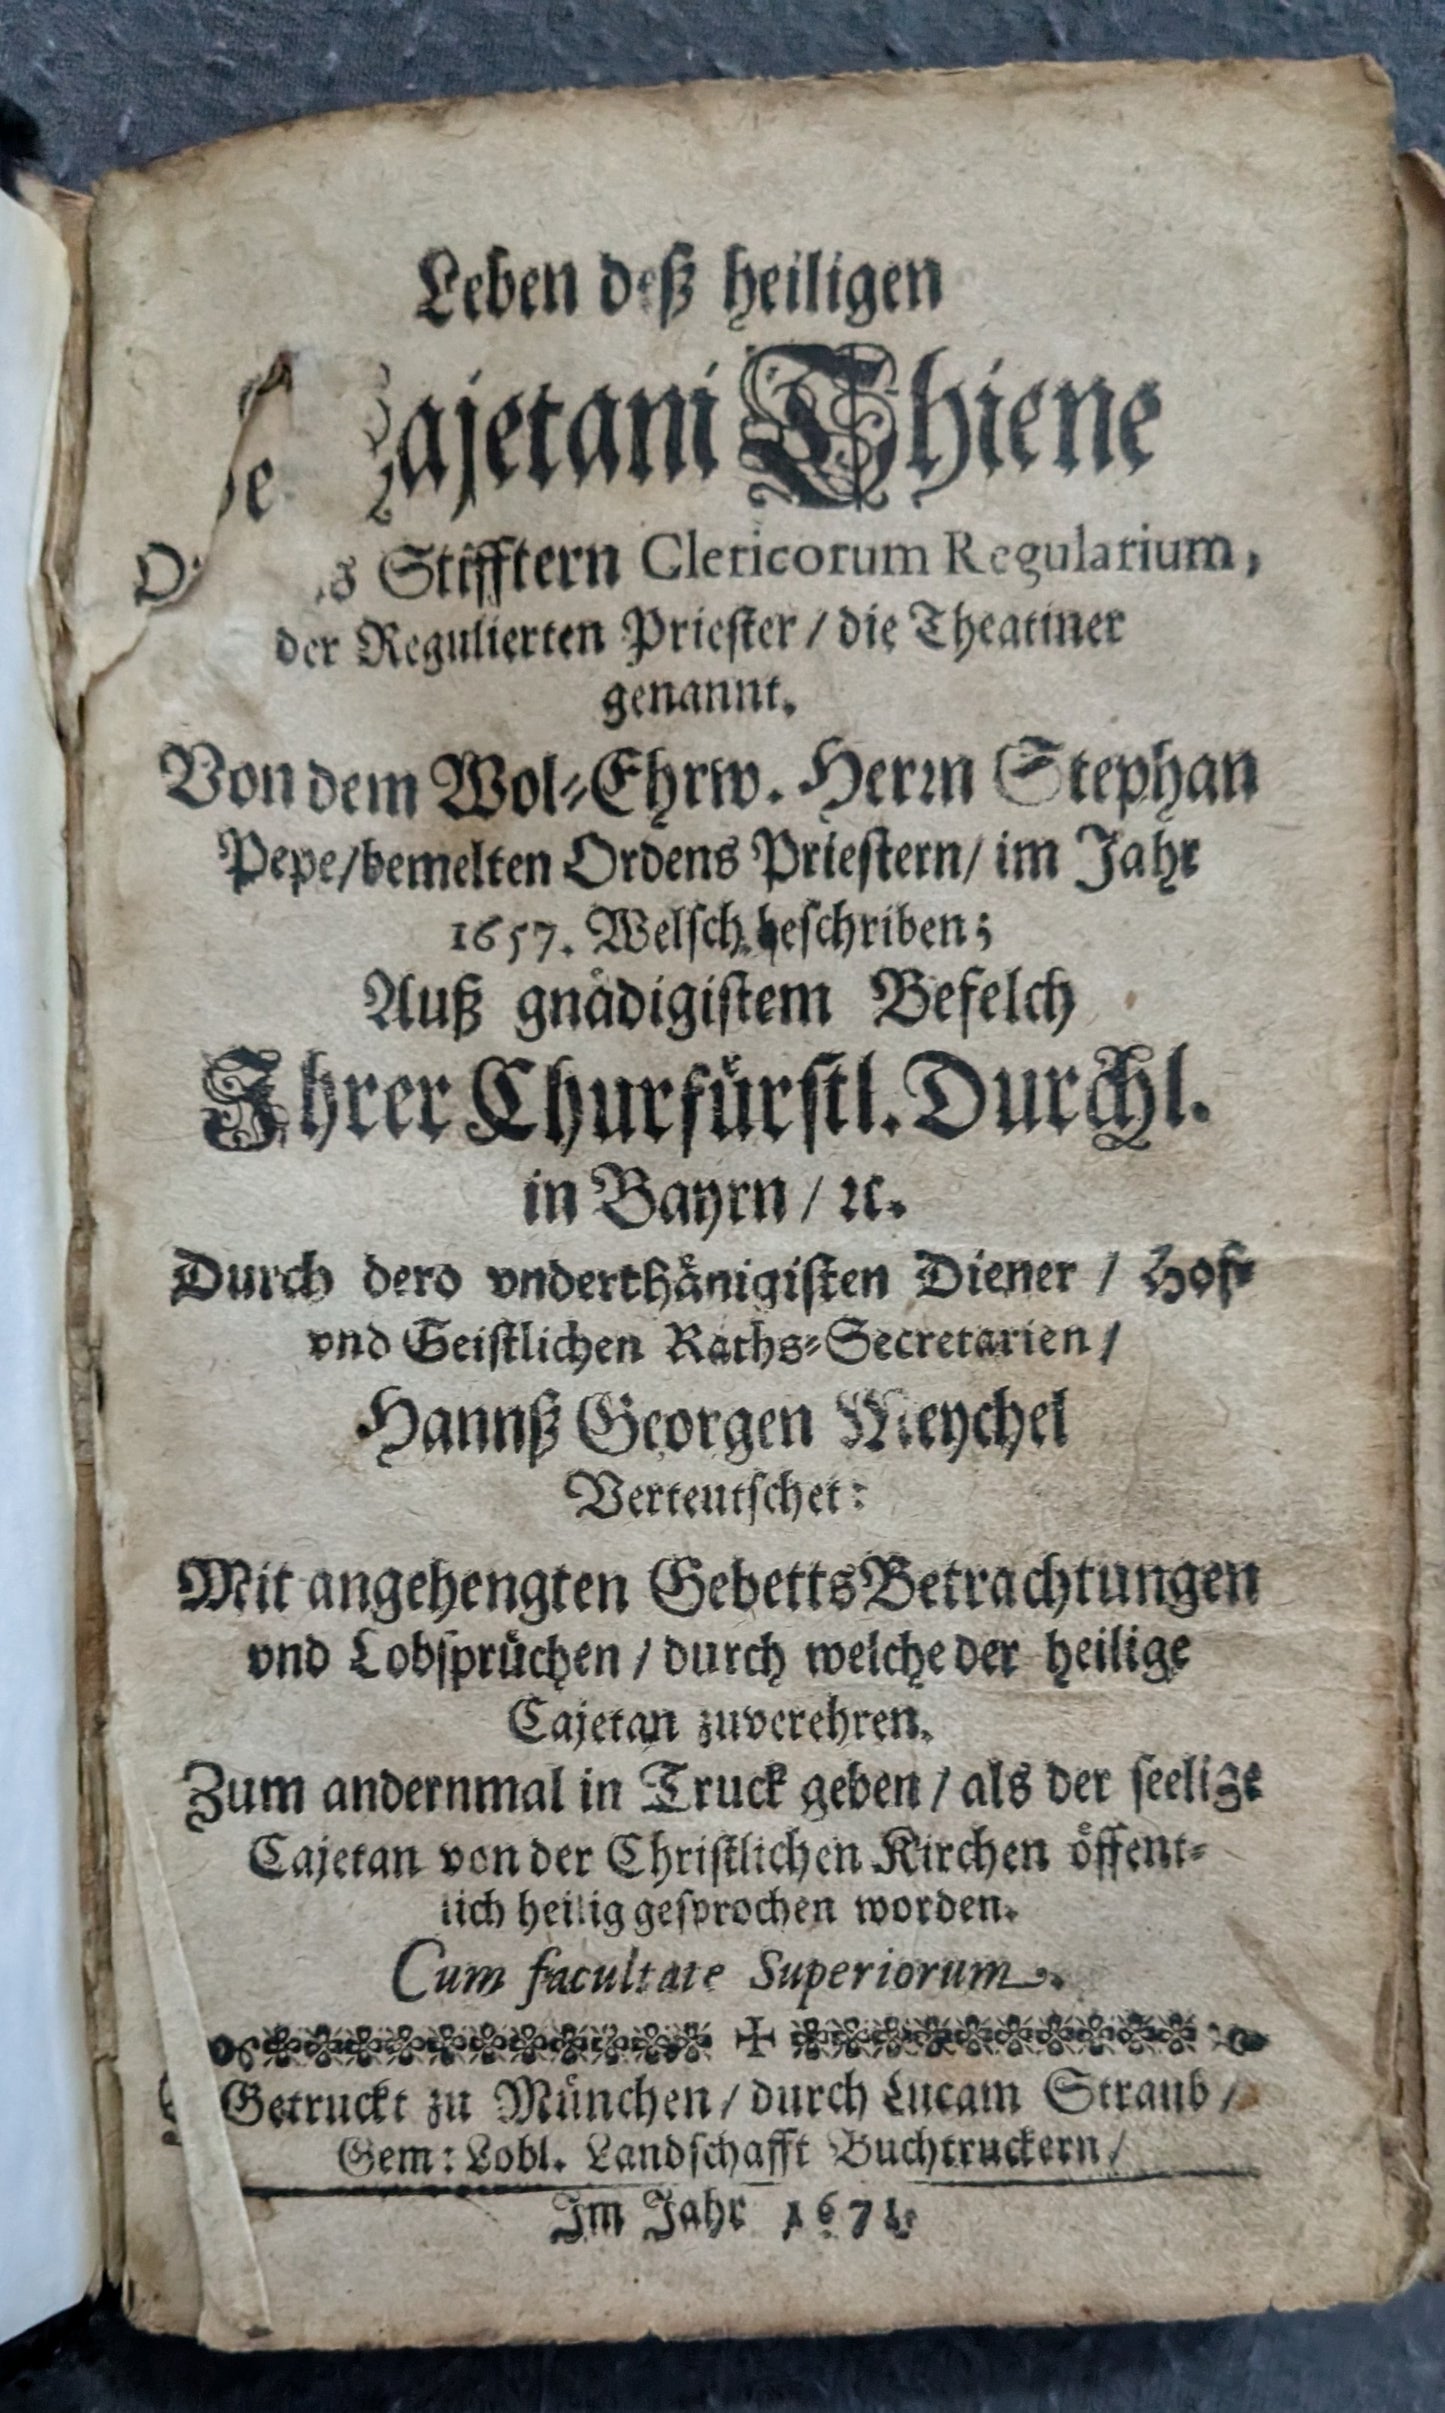 Leben deß heiligen
Cajetani Thiene
Stifftern Clericorum Regularium,
der Regulierten Priester / die Theatiner
genannt.
Von dem Wol-Ehrw. Herꝛn Stephan
Pepe/bemelten Ordens Priestern/ im Jahr
1657. Welsch beschriben;
Auß gnädigistem Befelch
Ihrer Churfürstl. Durchl.
in Bayrn / ꝛc.
Durch dero vnderthänigisten Diener / Hof-
vnd Geistlichen Raths-Secretarien /
Hannß Georgen Meychel
Verteutschet:
Mit angehengten Gebetts Betrachtungen
vnd Lobsprüchen / durch welche der heilige
Cajetan zuverehren.
Zum andernmal in Truck geben / als der seelige
Cajetan von der Christlichen Kirchen öffent-
lich heilig gesprochen worden.
Cum facultate Superiorum.
Getruckt zu München / durch Lucam Straub /
Gem: Lobl. Landschafft Buchtruckern /
Im Jahr 1671.